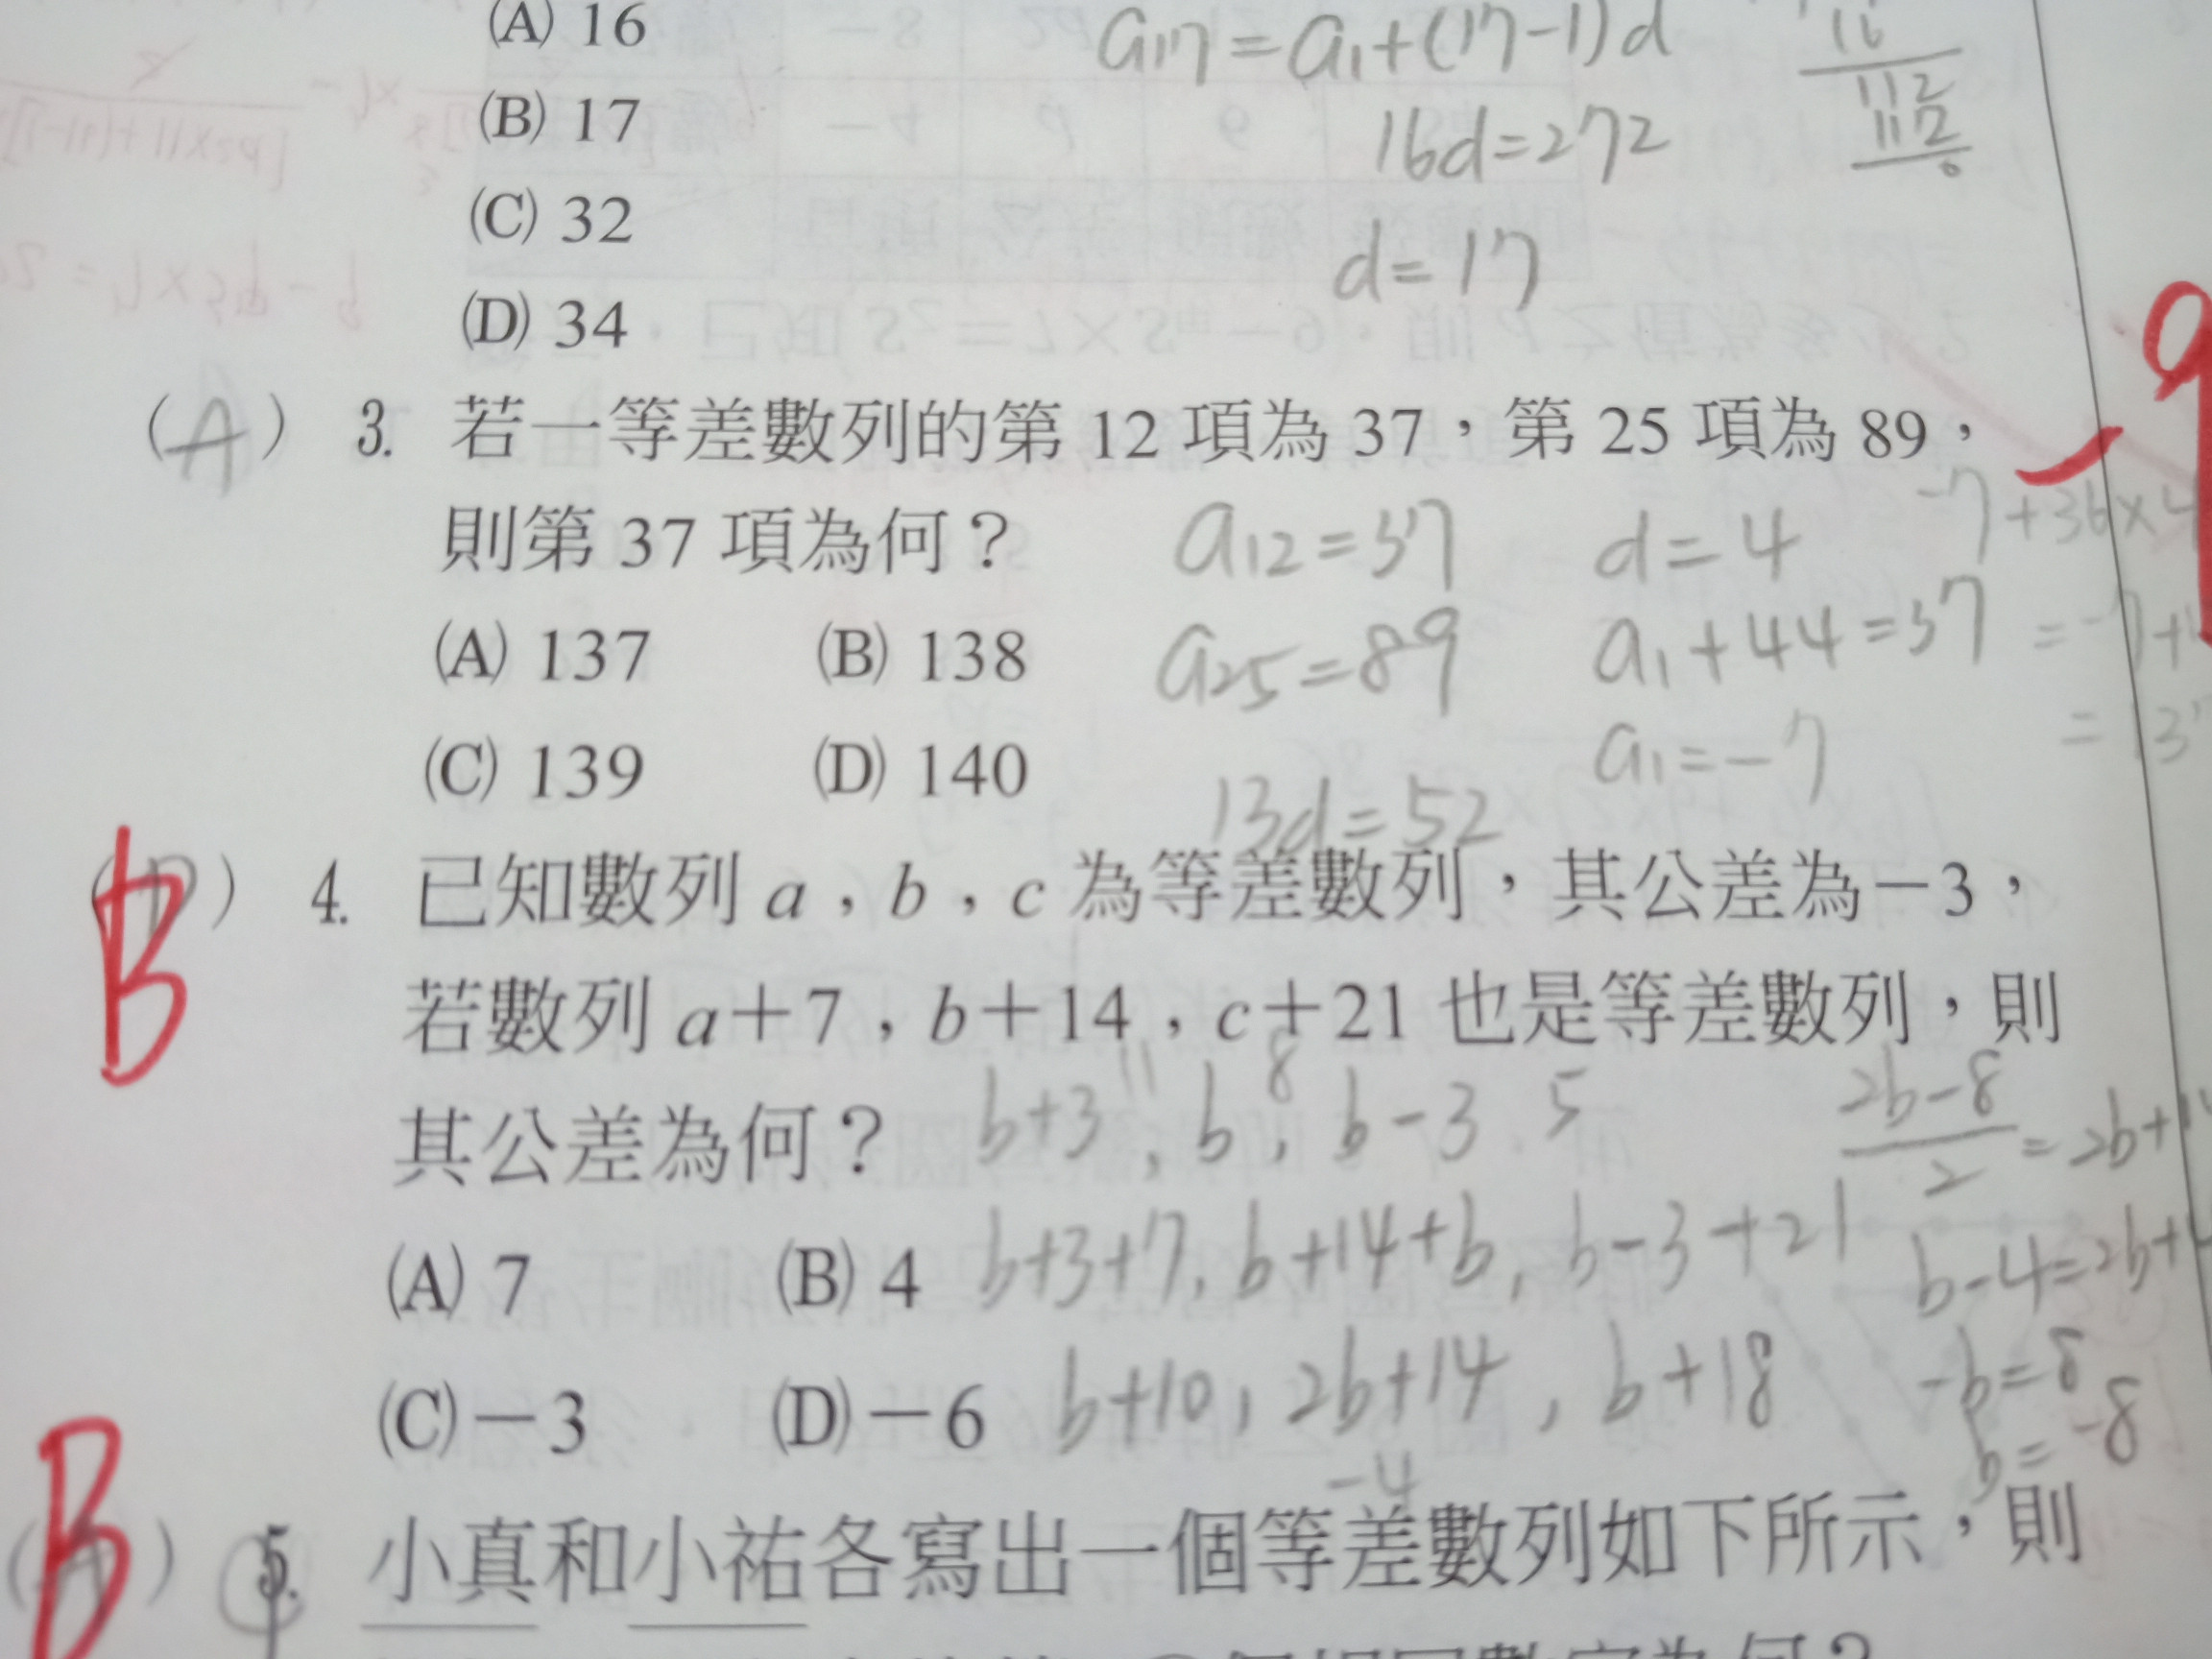 (A) 16
a17=a1+(17-1)d
16
112
112
0
(B) 17
16d=272
(C) 32
d=17
(D) 34
-9
(A) 3. 若一等差數列的第 12 項為 37，第 25 項為 89，
則第 37 項為何？
a12=37
d=4
-7+36×4
(A) 137 (B) 138
a25=89
a1+44=37
=-7+1
(C) 139 (D) 140
a1=-7
=137
13d=52
B
(D) 4. 已知數列 a，b，c 為等差數列，其公差為-3，
若數列 a+7，b+14，c+21 也是等差數列，則
其公差為何？
11 8 5
b+3, b, b-3
2b-8/2=2b+14
(A) 7 (B) 4
b+3+7, b+14+b, b-3+21
b-4=2b+4
(C)-3 (D)-6
b+10, 2b+14, b+18
-b=8
b=-8
-4
B
( ) 5. 小真和小祐各寫出一個等差數列如下所示，則
個相同數字為何？